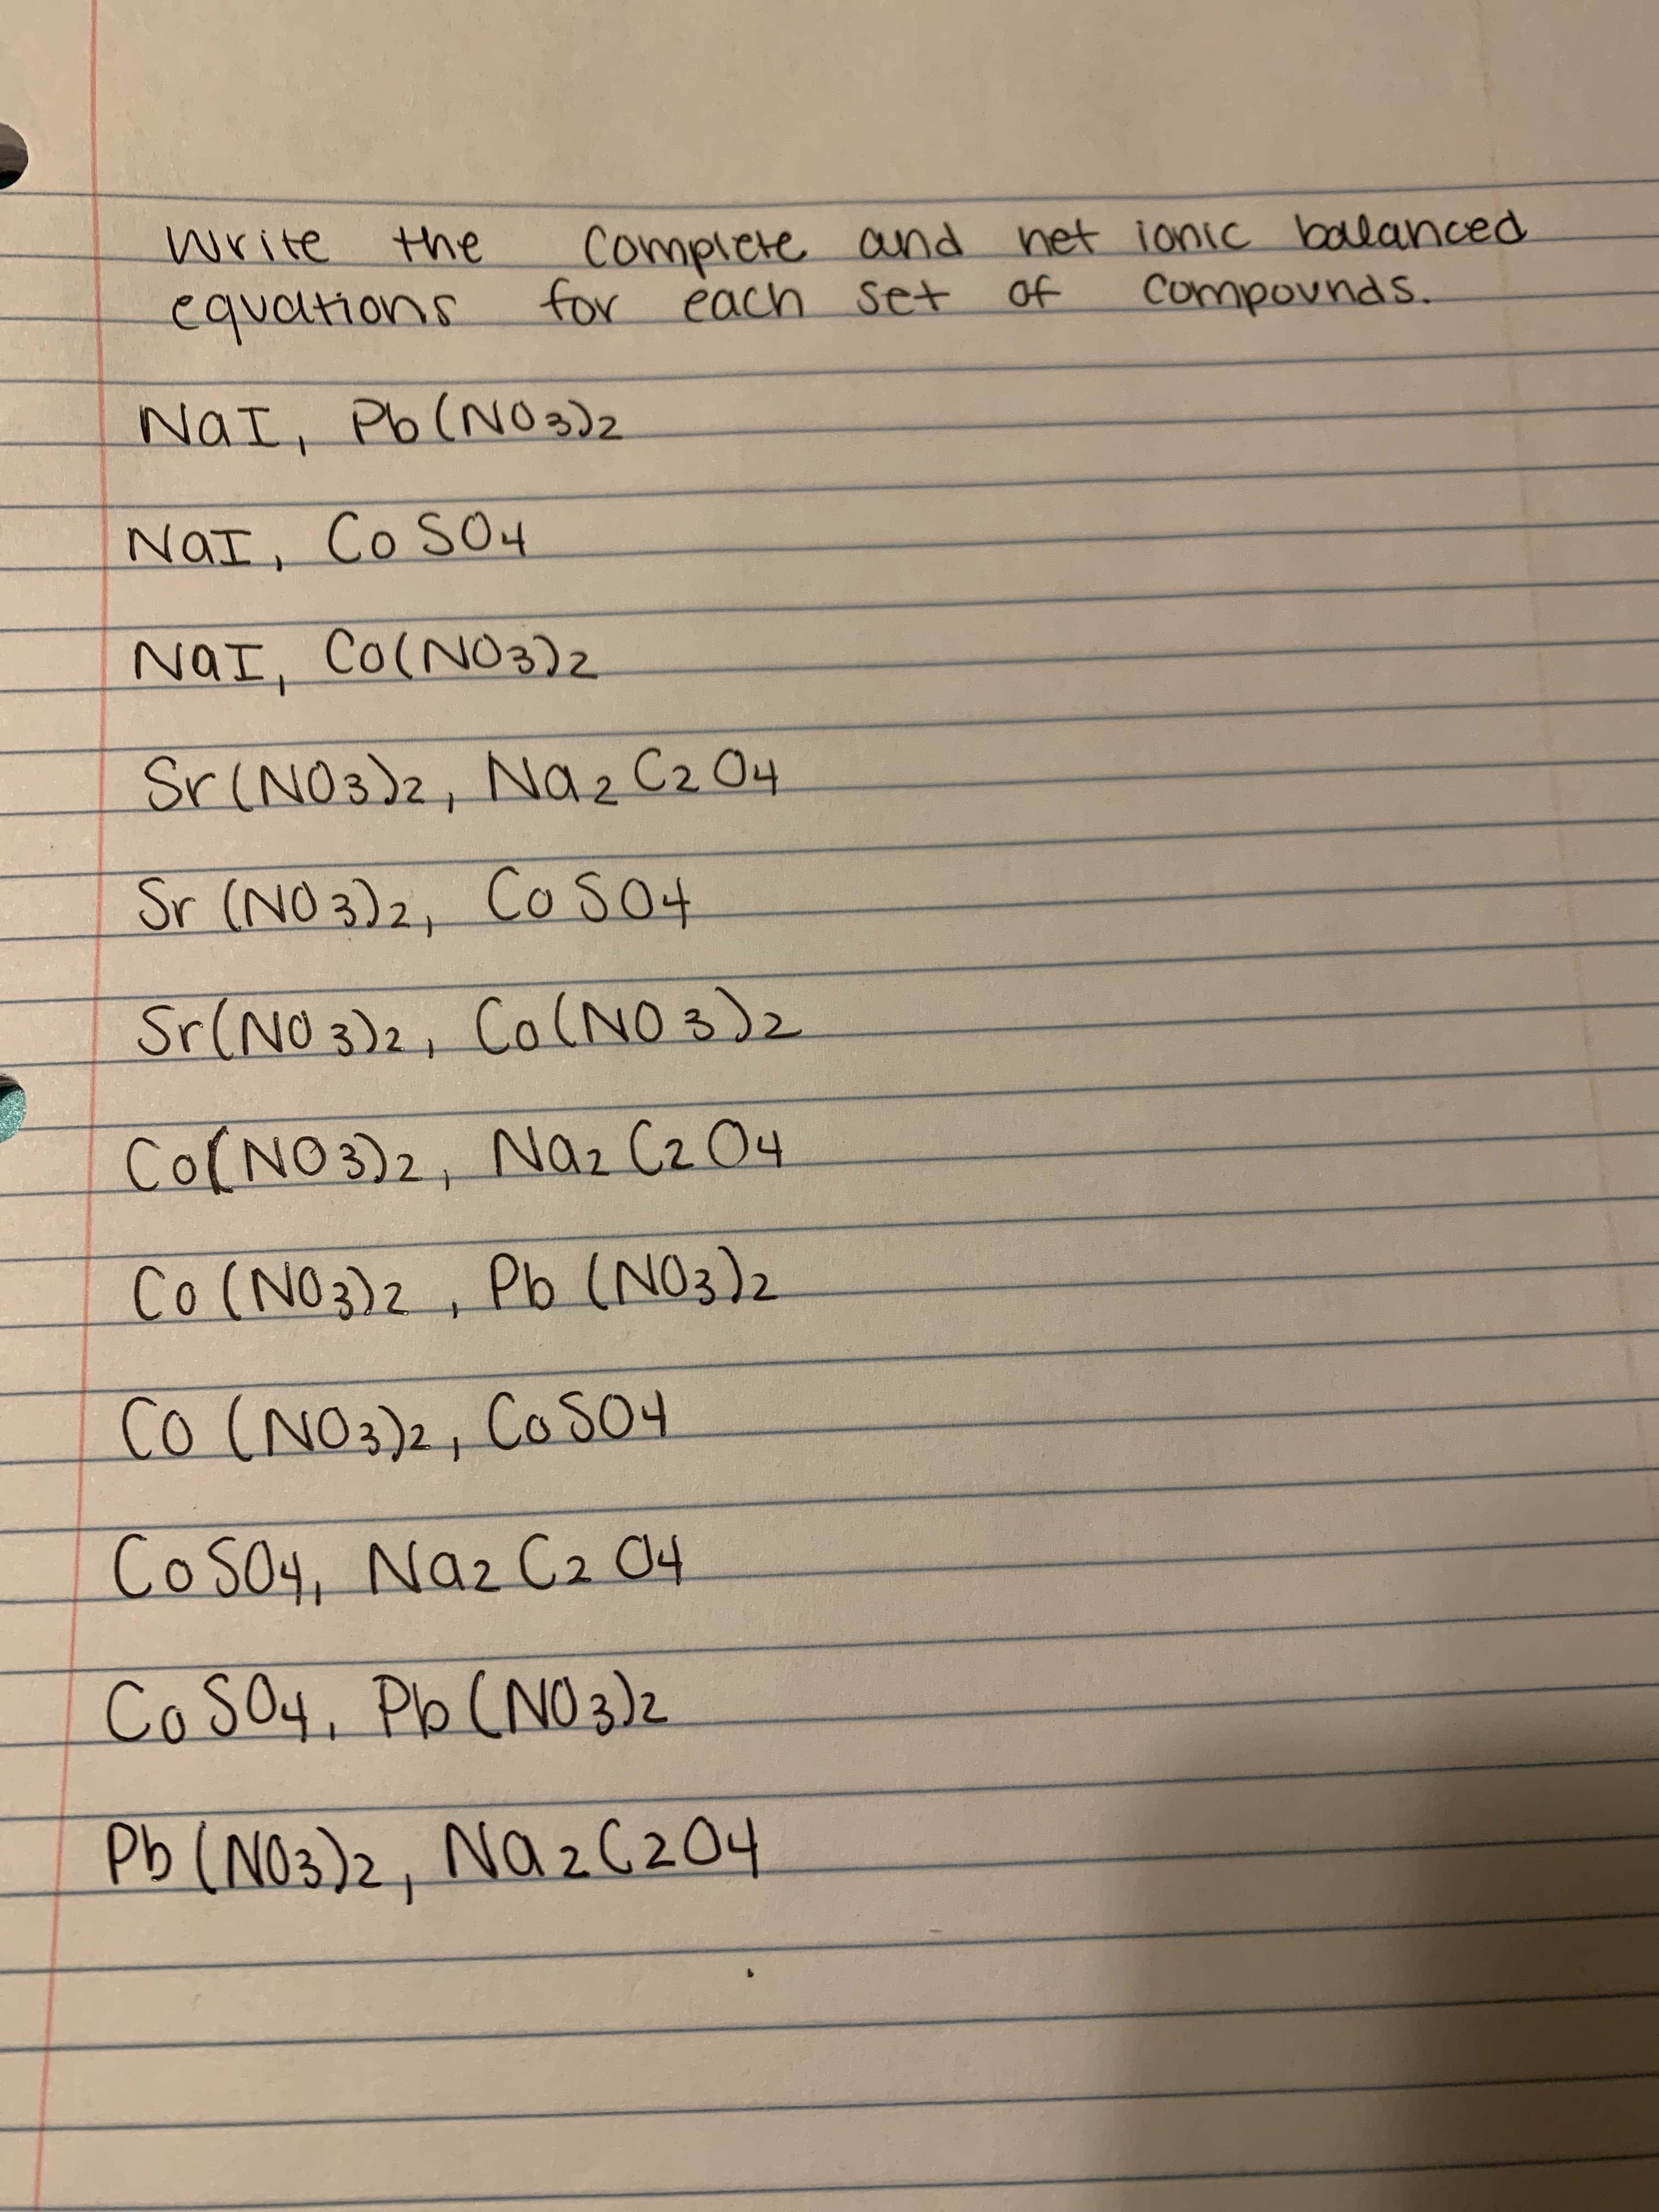 Write the complete and net ionic balanced
equations for each set of compounds.
NaI, Pb(NO3)2
NaI, CoSO4
NaI, Co(NO3)2
Sr(NO3)2, Na2C2O4
Sr(NO3)2, CoSO4
Sr(NO3)2, Co(NO3)2
Co(NO3)2, Na2C2O4
Co(NO3)2, Pb(NO3)2
Co(NO3)2, CoSO4
CoSO4, Na2C2O4
CoSO4, Pb(NO3)2
Pb(NO3)2, Na2C2O4